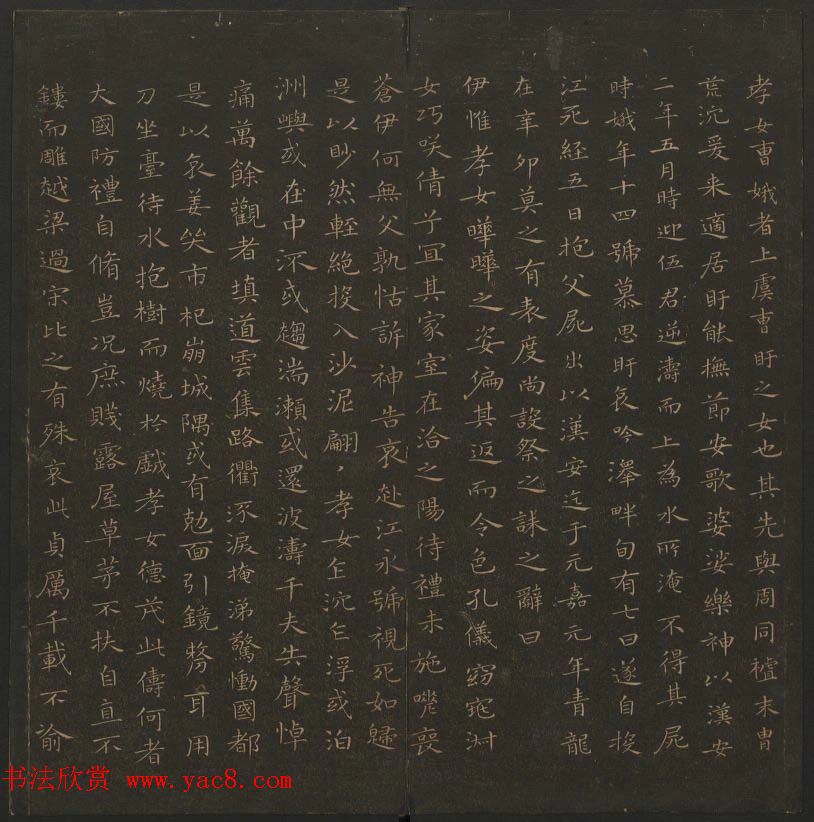 孝女曹娥者上虞曹盱之女也其先與周同祖末胄
荒沉爰来適居盱能撫節安歌婆娑樂神以漢安
二年五月時迎伍君逆濤而上為水所淹不得其屍
時娥年十四號慕思盱哀吟澤畔旬有七日遂自投
江死經五日抱父屍出以漢安迄于元嘉元年青龍
在辛卯莫之有表度尚設祭之誄之辭曰
伊惟孝女曄曄之姿偏其返而令色孔儀窈窕淑
女巧咲倩兮宜其家室在洽之陽待禮未施嗟喪
蒼伊何無父孰怙訴神告哀赴江永號視死如歸
是以眇然輕絶投入沙泥翩〻孝女乍沉乍浮或泊
洲嶼或在中流或趨湍瀬或還波濤千夫失聲悼
痛萬餘觀者填道雲集路衢流淚掩涕驚慟國都
是以哀姜哭市杞崩城隅或有勊面引鏡剺耳用
刀坐臺待水抱樹而燒於戲孝女德茂此儔何者
大國防禮自脩豈况庶賤露屋草茅不扶自直不
鏤而雕越梁過宋比之有殊哀此貞厲千載不渝
书法欣赏 www.yac8.com